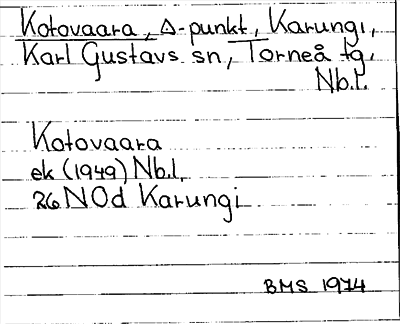 Kotovaara, Δ-punkt, Karungi,
Karl Gustavs sn, Torneå tg,
Nb.l.
Kotovaara
ek (1949) Nb.l.
26 NOd Karungi
BMS 1974